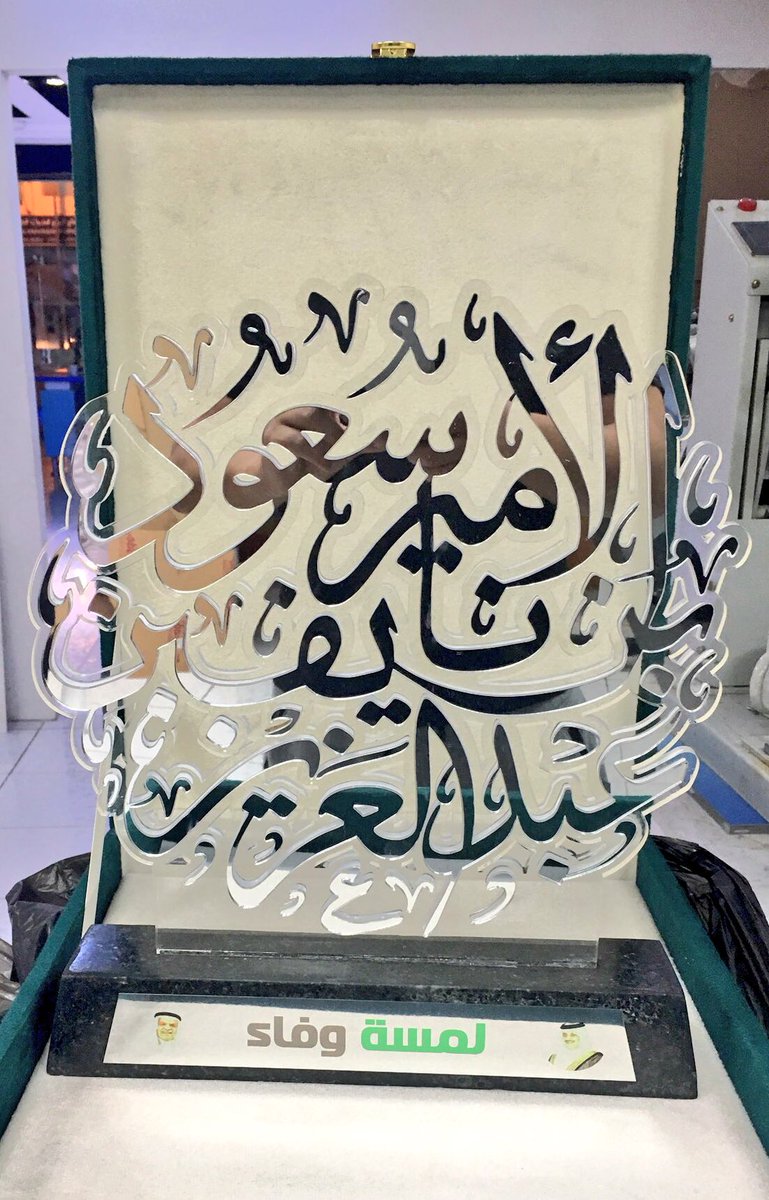 الأمير سعود
بن نايف بن
عبدالعزيز
لمسة وفاء